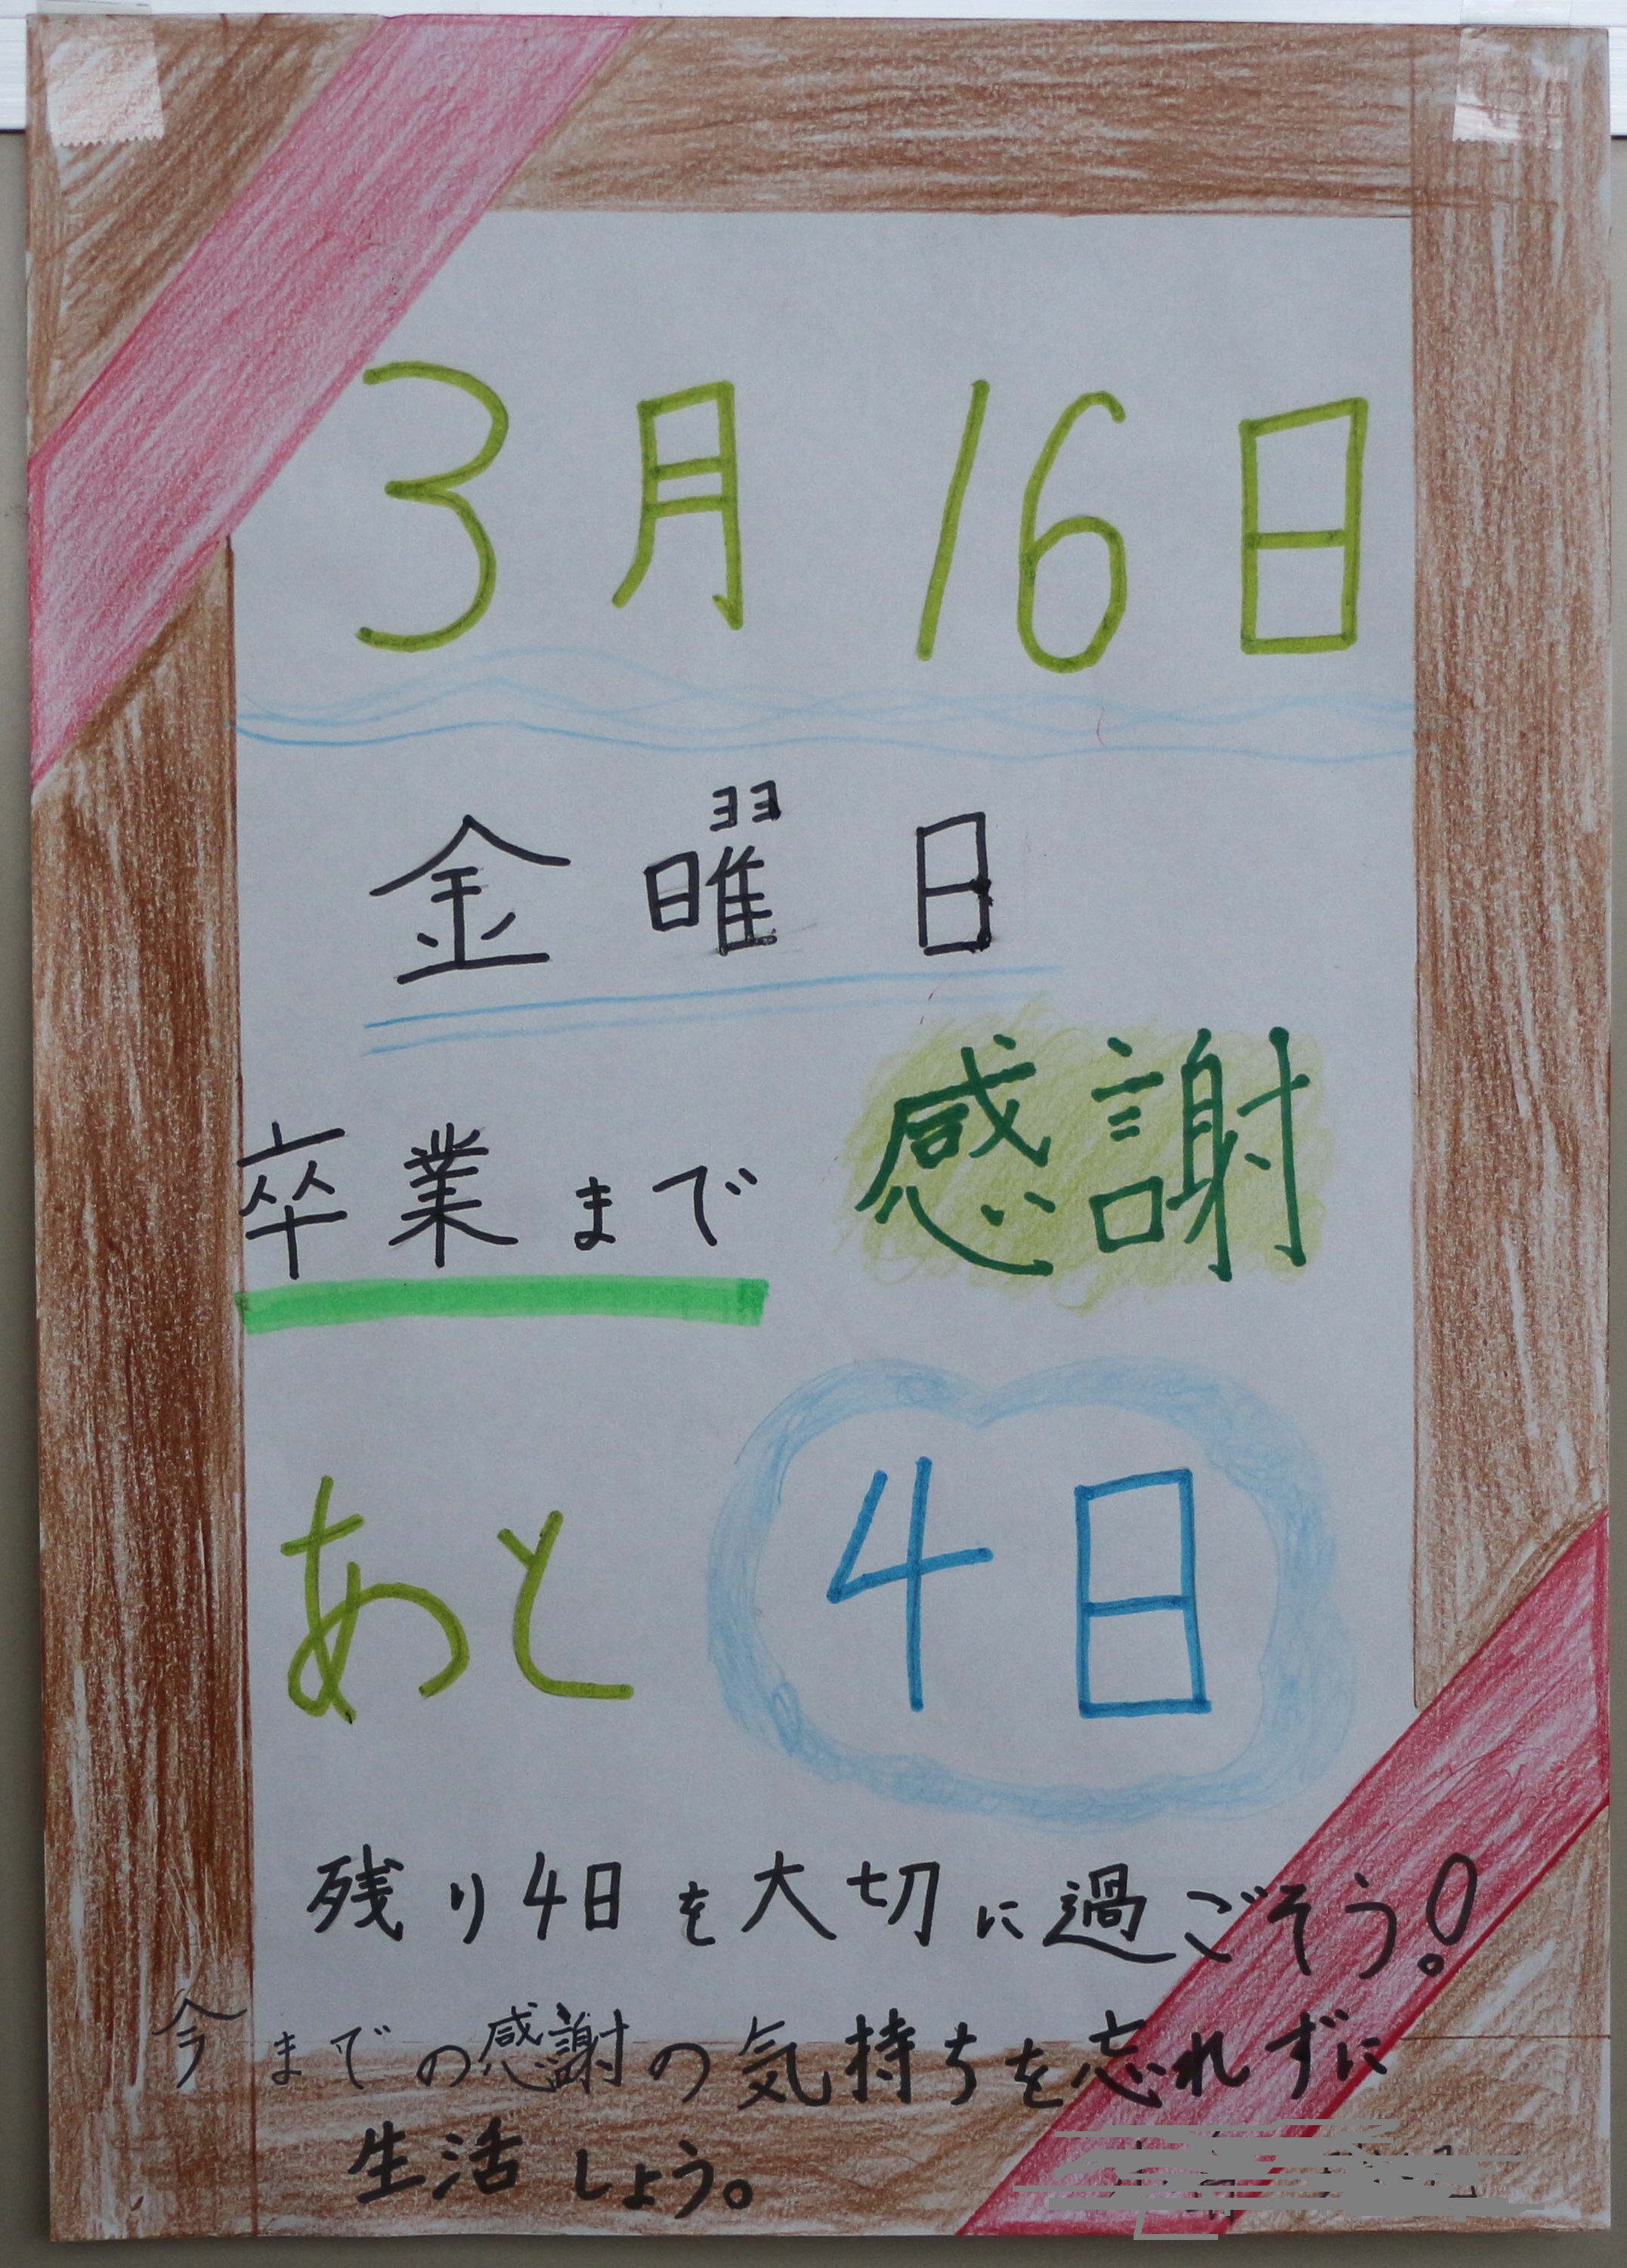 3月 16日
金曜日
感謝
卒業まで
あと 4日
残り4日を大切に過ごそう!
今までの感謝の気持ちを忘れずに
生活しょう。